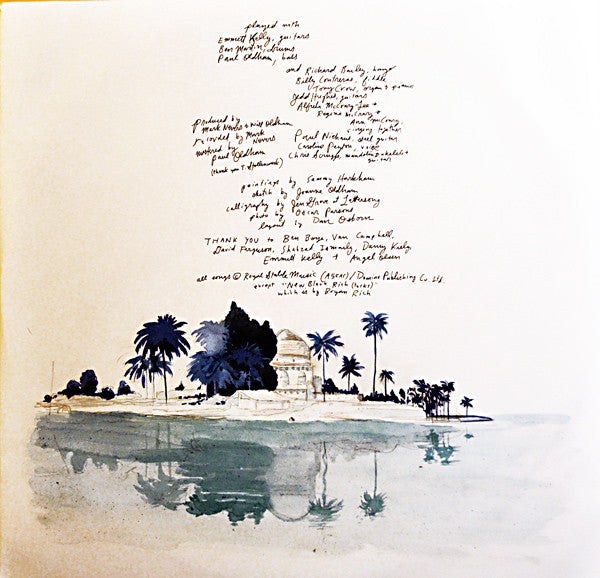 played with
Emmett Kelly, guitars
Ben Martin, drums
Paul Oldham, bass
and Richard Bailey, banjo
Billy Contreras, fiddle
Tony Crow, organ & piano
Jedd Hughes, guitars
Alfreda McCrary Lee +
Regina McCrary +
Ann McCrary,
singing together
Paul Niehaus, steel guitar
Caroline Peyton, voice
Chris Scruggs, mandolin & ukelele +
guitar
produced by
Mark Nevers & Will Oldham
recorded by Mark
Nevers
mastered by
Paul Oldham
(thank you T.
paintings by Sammy Harkham
sketch by Joanne Oldham
calligraphy by Jen Grove of Lettersong
photo by Oscar Parsons
layout by Dan Osborn
THANK YOU to Ben Boye, Van Campbell,
David Ferguson, Shahzad Ismaily, Danny Kiely
Emmett Kelly + Angel Olsen
all songs © Royal Stable Music (ASCAP) / Domino Publishing Co. Ltd.
except "New Black Rich (tusks)"
which is by Bryan Rich